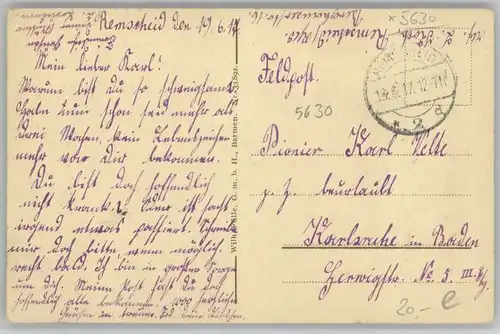 Remscheid den 19.6.17
Mein lieber Karl!
Warum bist Du so schweigsam?
Habe nun schon seit mehr als
drei Wochen, kein Lebenszeichen
mehr von Dir bekommen.
Du bist doch hoffendlich
nicht krank? Oder ist sonst
irgend etwas passiert. Schreib
mir doch bitte, wenn möglich
recht bald. Ich bin in großer Sorge
um Dich. Meine Post hast Du doch
hoffendlich alle bekommen. 1000 herzliche
Grüße in treuer
Feldpost.
*5630
5630
19.6.17.12-1N
* 2 d
Pionier Karl Velte
p. Z. beurlaubt
Karlsruhe in Baden
Herwigstr. No 5. III.
20,- e
Wilh. Fülle, G. m. b. H., Barmen.